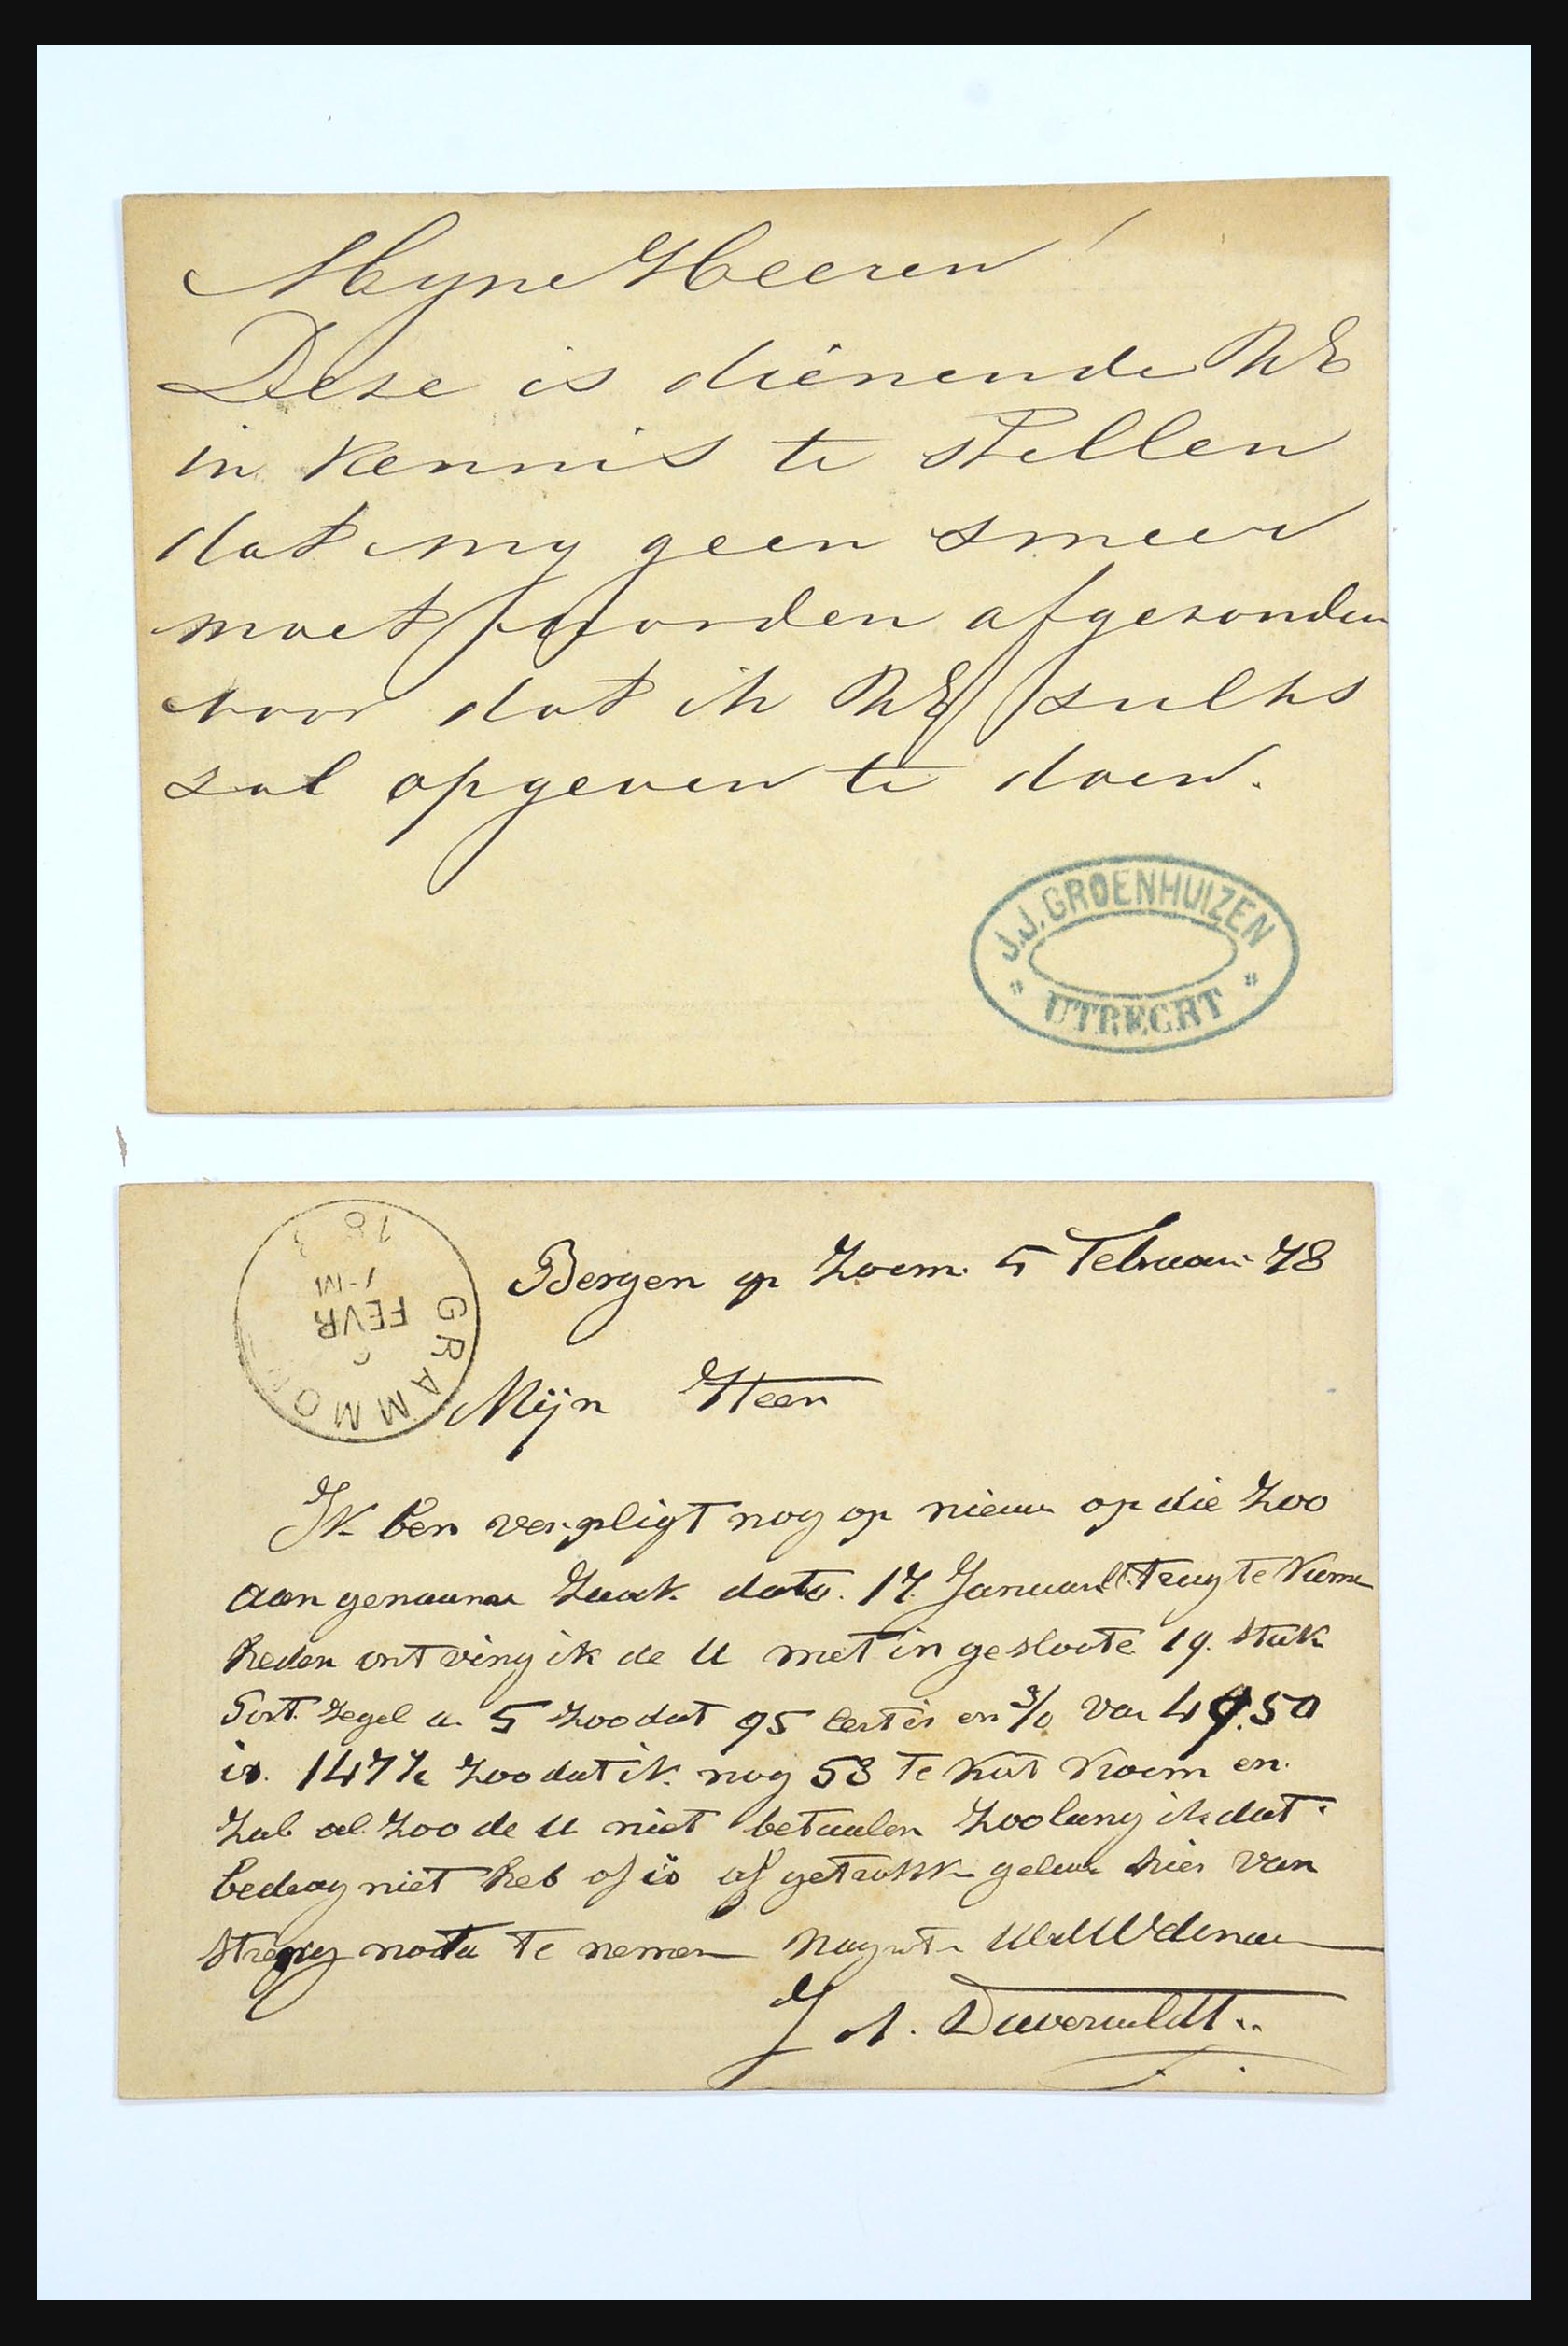 Myne Heeren!
Deze is dienende UE
in kennis te stellen
dat my geen smeer
moet worden afgezonden
voor dat ik UE zulks
zal opgeven te doen.
J.J. GROENHUIZEN
" UTRECHT "
Bergen op Zoom 5 Februari 78
GRAMMON
FEVR
7-M
Mijn Heer
Ik ben verpligt nog op nieuw op die zoo
aan genaame zaak dato. 17 Januari terug te kome
heden ontving ik de U met in gesloote 19. stuk
Post. zegel a. 5 zoo dat 95 Cert is en 3/0 van 49.50
is. 147½ zoo dat ik nog 53 te kort koom en.
zal al zoo de U niet betaalen zoolang ik dat
bedrag niet heb of is af getrokk gelieve hier van
streng nota te nemen
J A. Duvervoldt